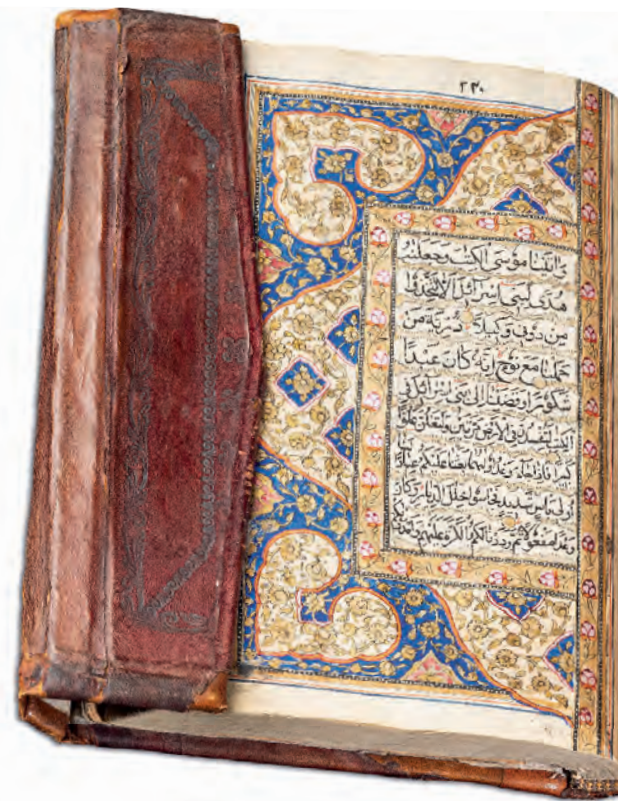 ٢٣٠
وَاتَيْنَا مُوسَى الْكِتٰبَ وَجَعَلْنٰهُ
هُدًى لِبَنِي اِسْرَائِلَ اَلَّا تَتَّخِذُوا
مِن دُونِي وَكِيلًا ذُرِّيَّةَ مَنْ
حَمَلْنَا مَعَ نُوحٍ اِنَّهُ كَانَ عَبْدًا
شَكُورًا وَقَضَيْنَا اِلَى بَنِي اِسْرَائِلَ فِي
الكتب لتفسدن في الارض مرتين ولتعلن علوا
كبيرا فاذا جاء وعد اوليهما بعثنا عليكم عبادا لنا
اولي باس شديد فجاسوا خلال الديار وكان
وعدا مفعولا ثم رددنا لكم الكرة عليهم وامددناكم